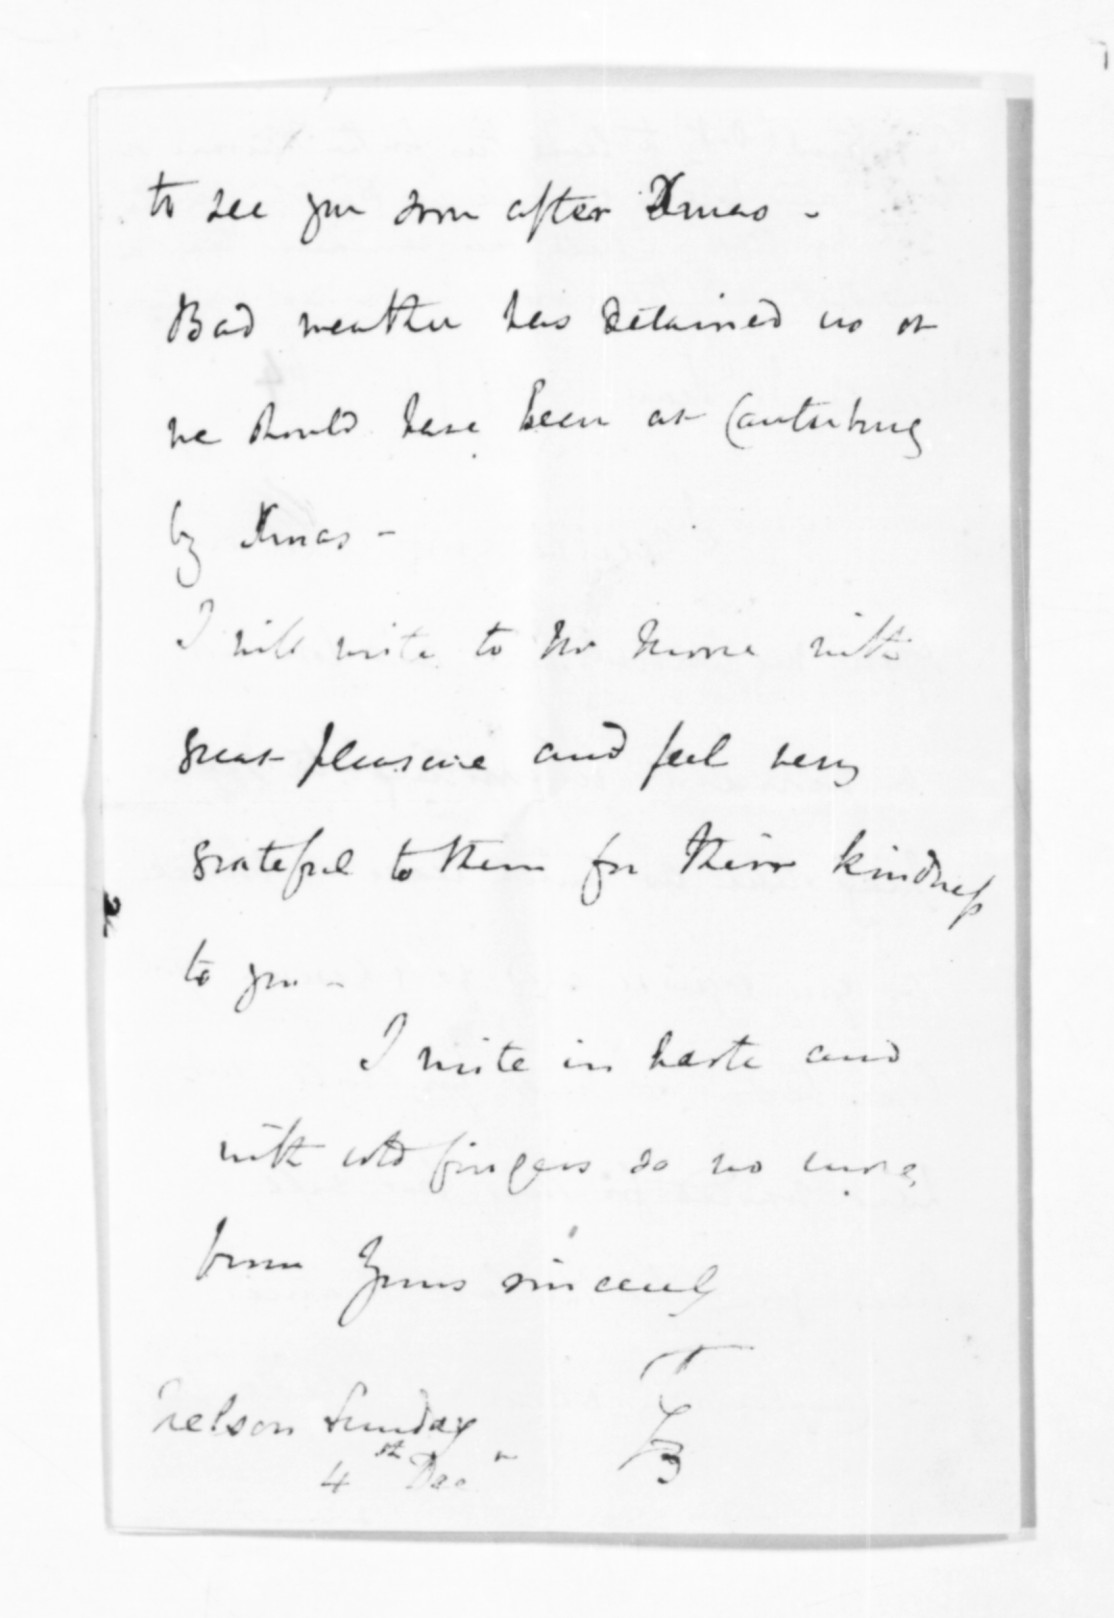 to see you soon after Xmas -
Bad weather has detained us or
we should have been at Canterbury
by Xmas -
I will write to Mr
with
great pleasure and feel very
grateful to them for their kindness
to you -
I write in haste and
with cold fingers so no more,
from Yours sincerely
Nelson Sunday
4th Decr